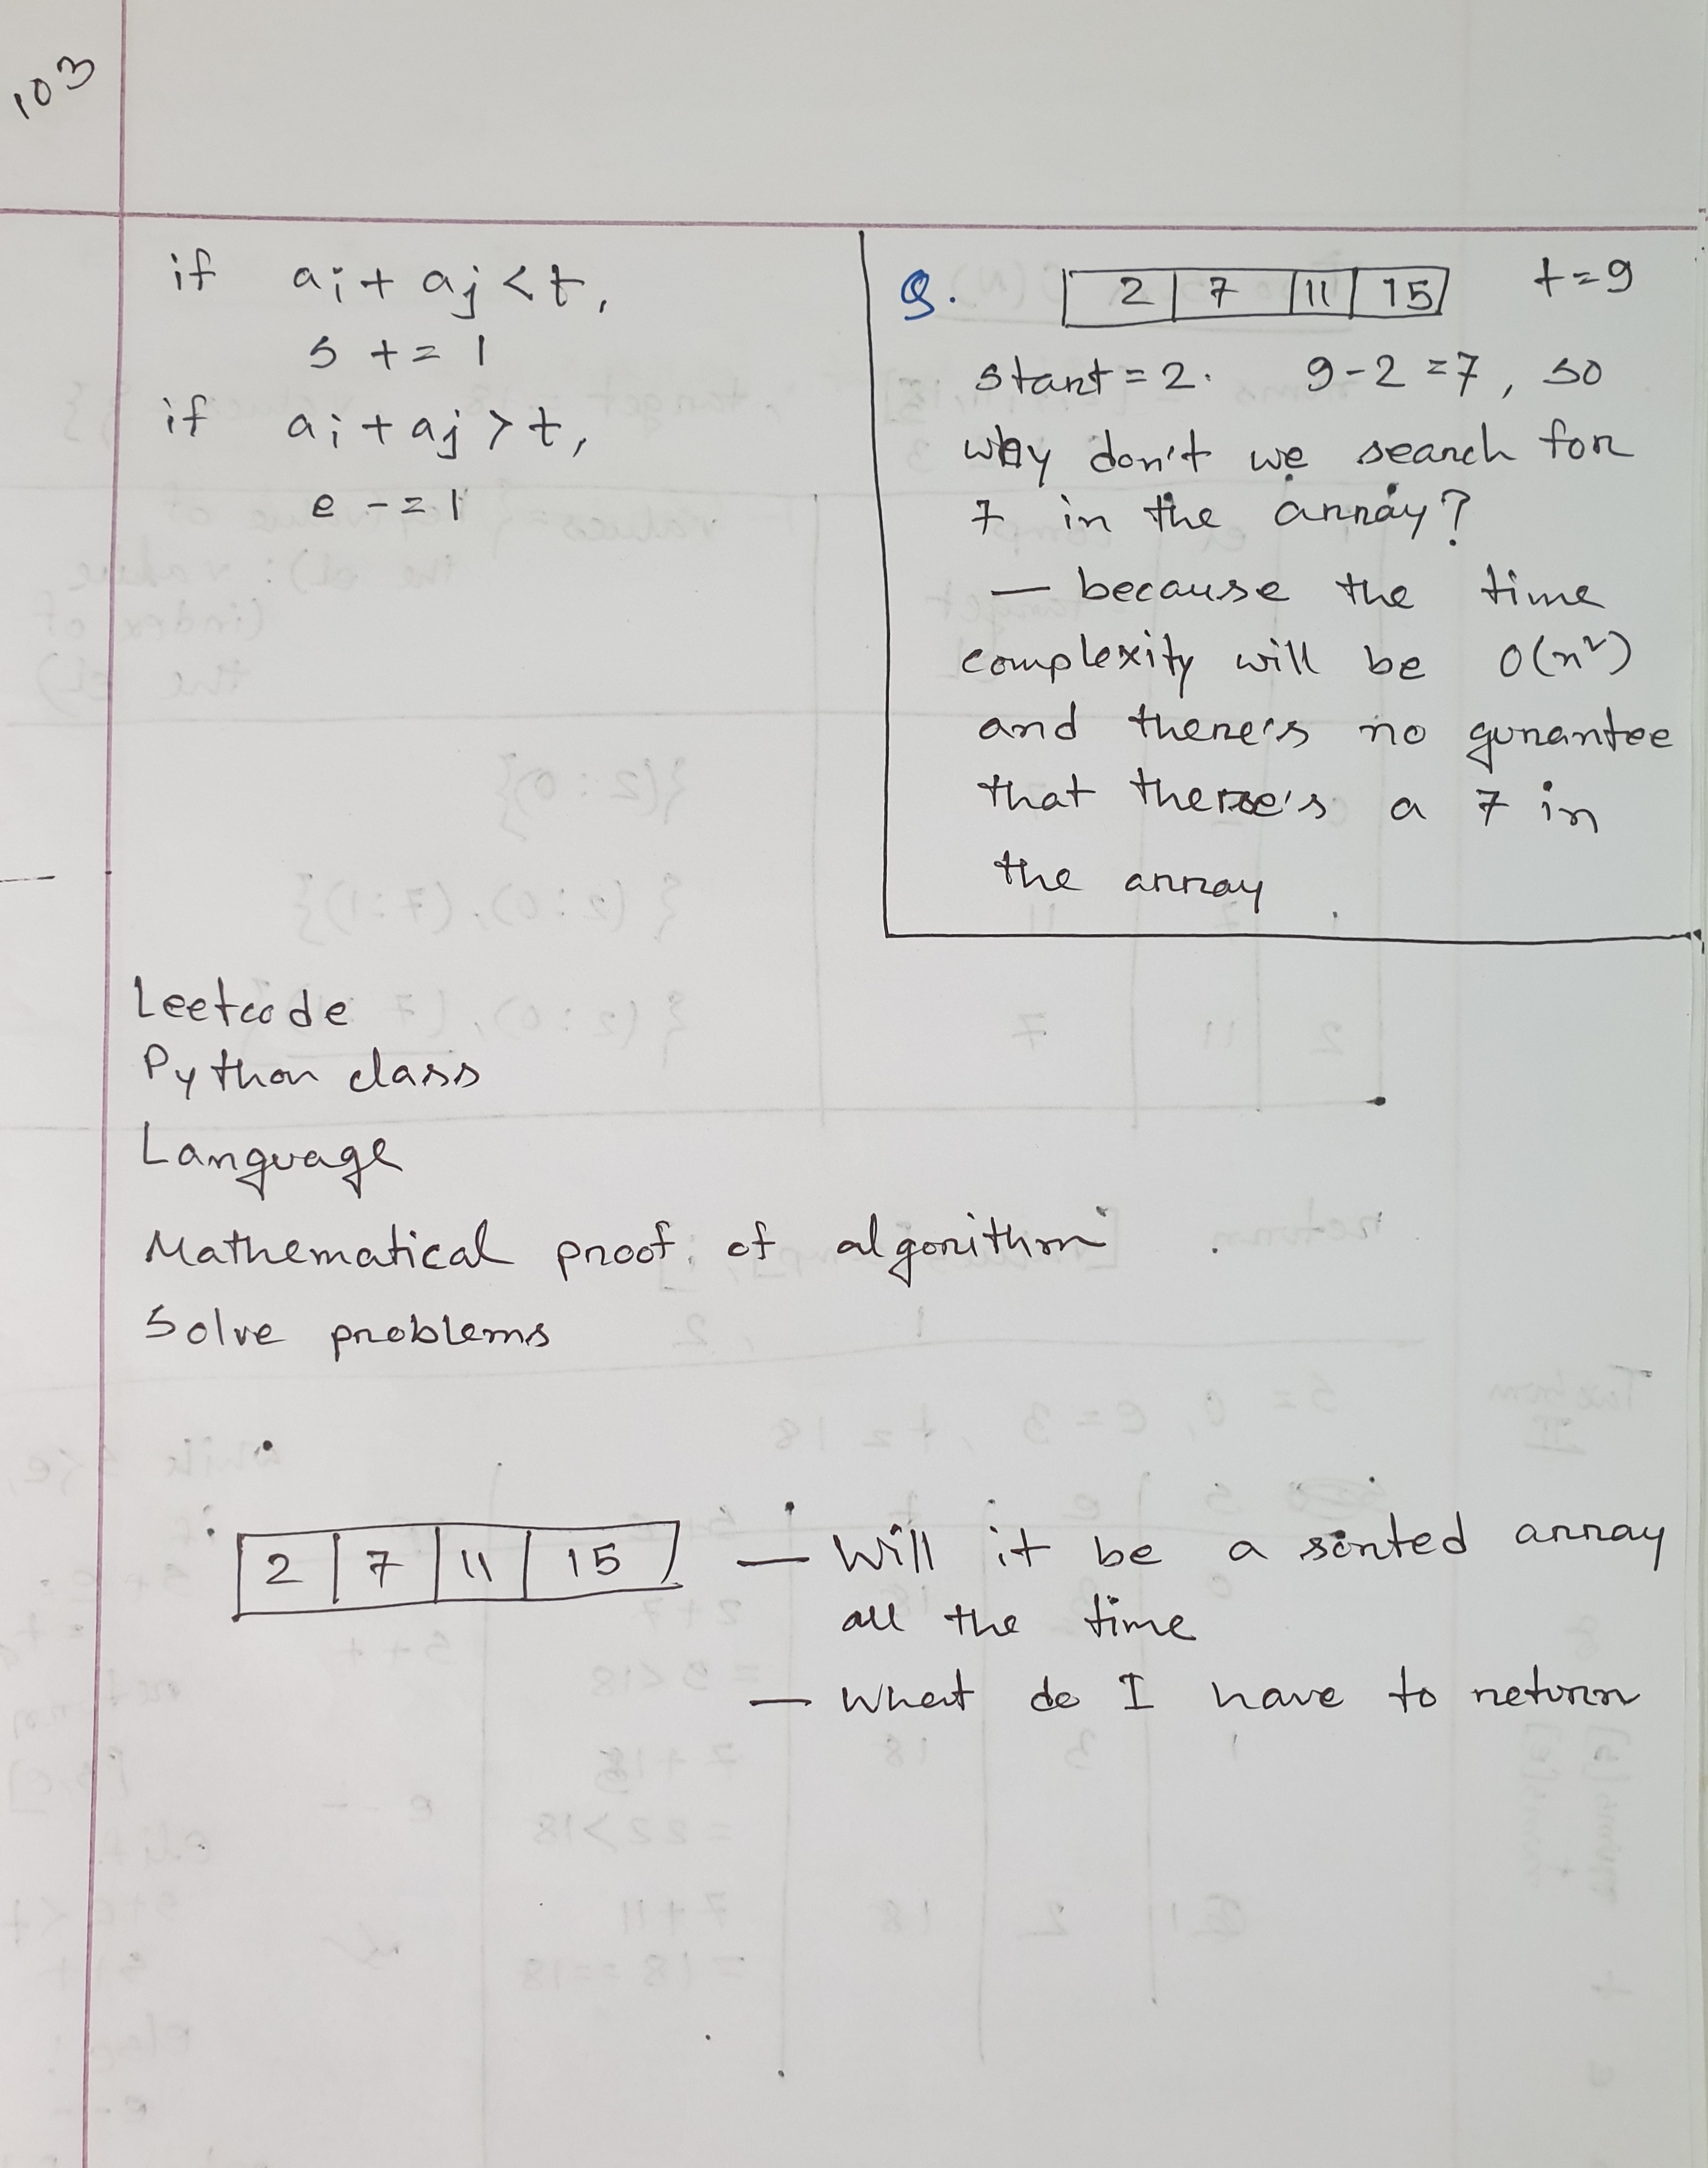 103
if ai + aj < t,
s += 1
if ai + aj > t,
e -= 1
Q. 2 7 11 15 t = 9
start = 2. 9-2 = 7, so
why don't we search for
7 in the array?
— because the time
complexity will be O(n²)
and there's no gurantee
that there's a 7 in
the array
Leetcode
Python class
Language
Mathematical proof of algorithm
Solve problems
2 7 11 15 — Will it be a sorted array
all the time
— What do I have to return